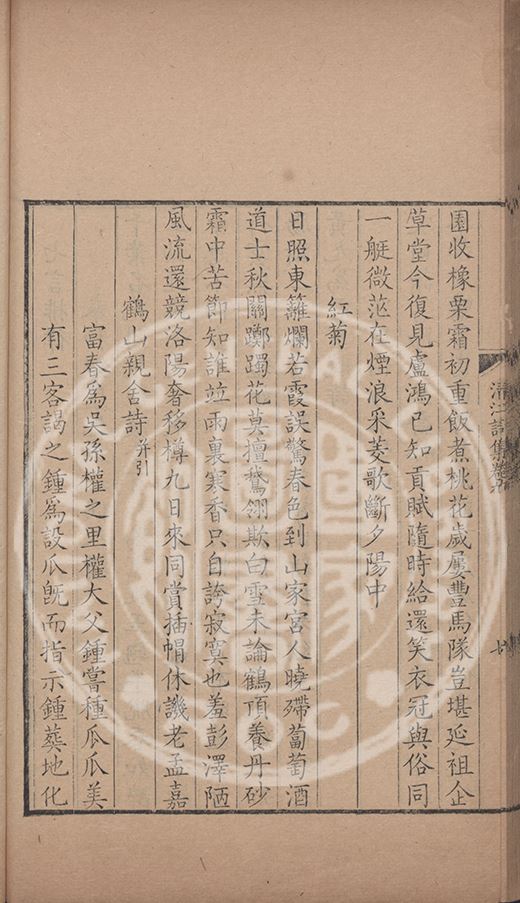 園收橡栗霜初重飯煮桃花歲屢豐馬隊豈堪延祖企
草堂今復見盧鴻已知貢賦隨時給還笑衣冠與俗同
一艇微茫在煙浪采菱歌斷夕陽中
紅菊
日照東籬爛若霞誤驚春色到山家宮人曉殢葡萄酒
道士秋開躑躅花莫擅鵞翎欺白雪未論鶴頂養丹砂
霜中苦節知誰並雨裏寒香只自誇寂寞也羞彭澤陋
風流還競洛陽奢移樽九日來同賞插帽休譏老孟嘉
鶴山親舍詩并引
富春爲吳孫權之里權大父鍾嘗種瓜瓜美
有三客謁之鍾爲設瓜旣而指示鍾葬地化
清江詩集卷
七